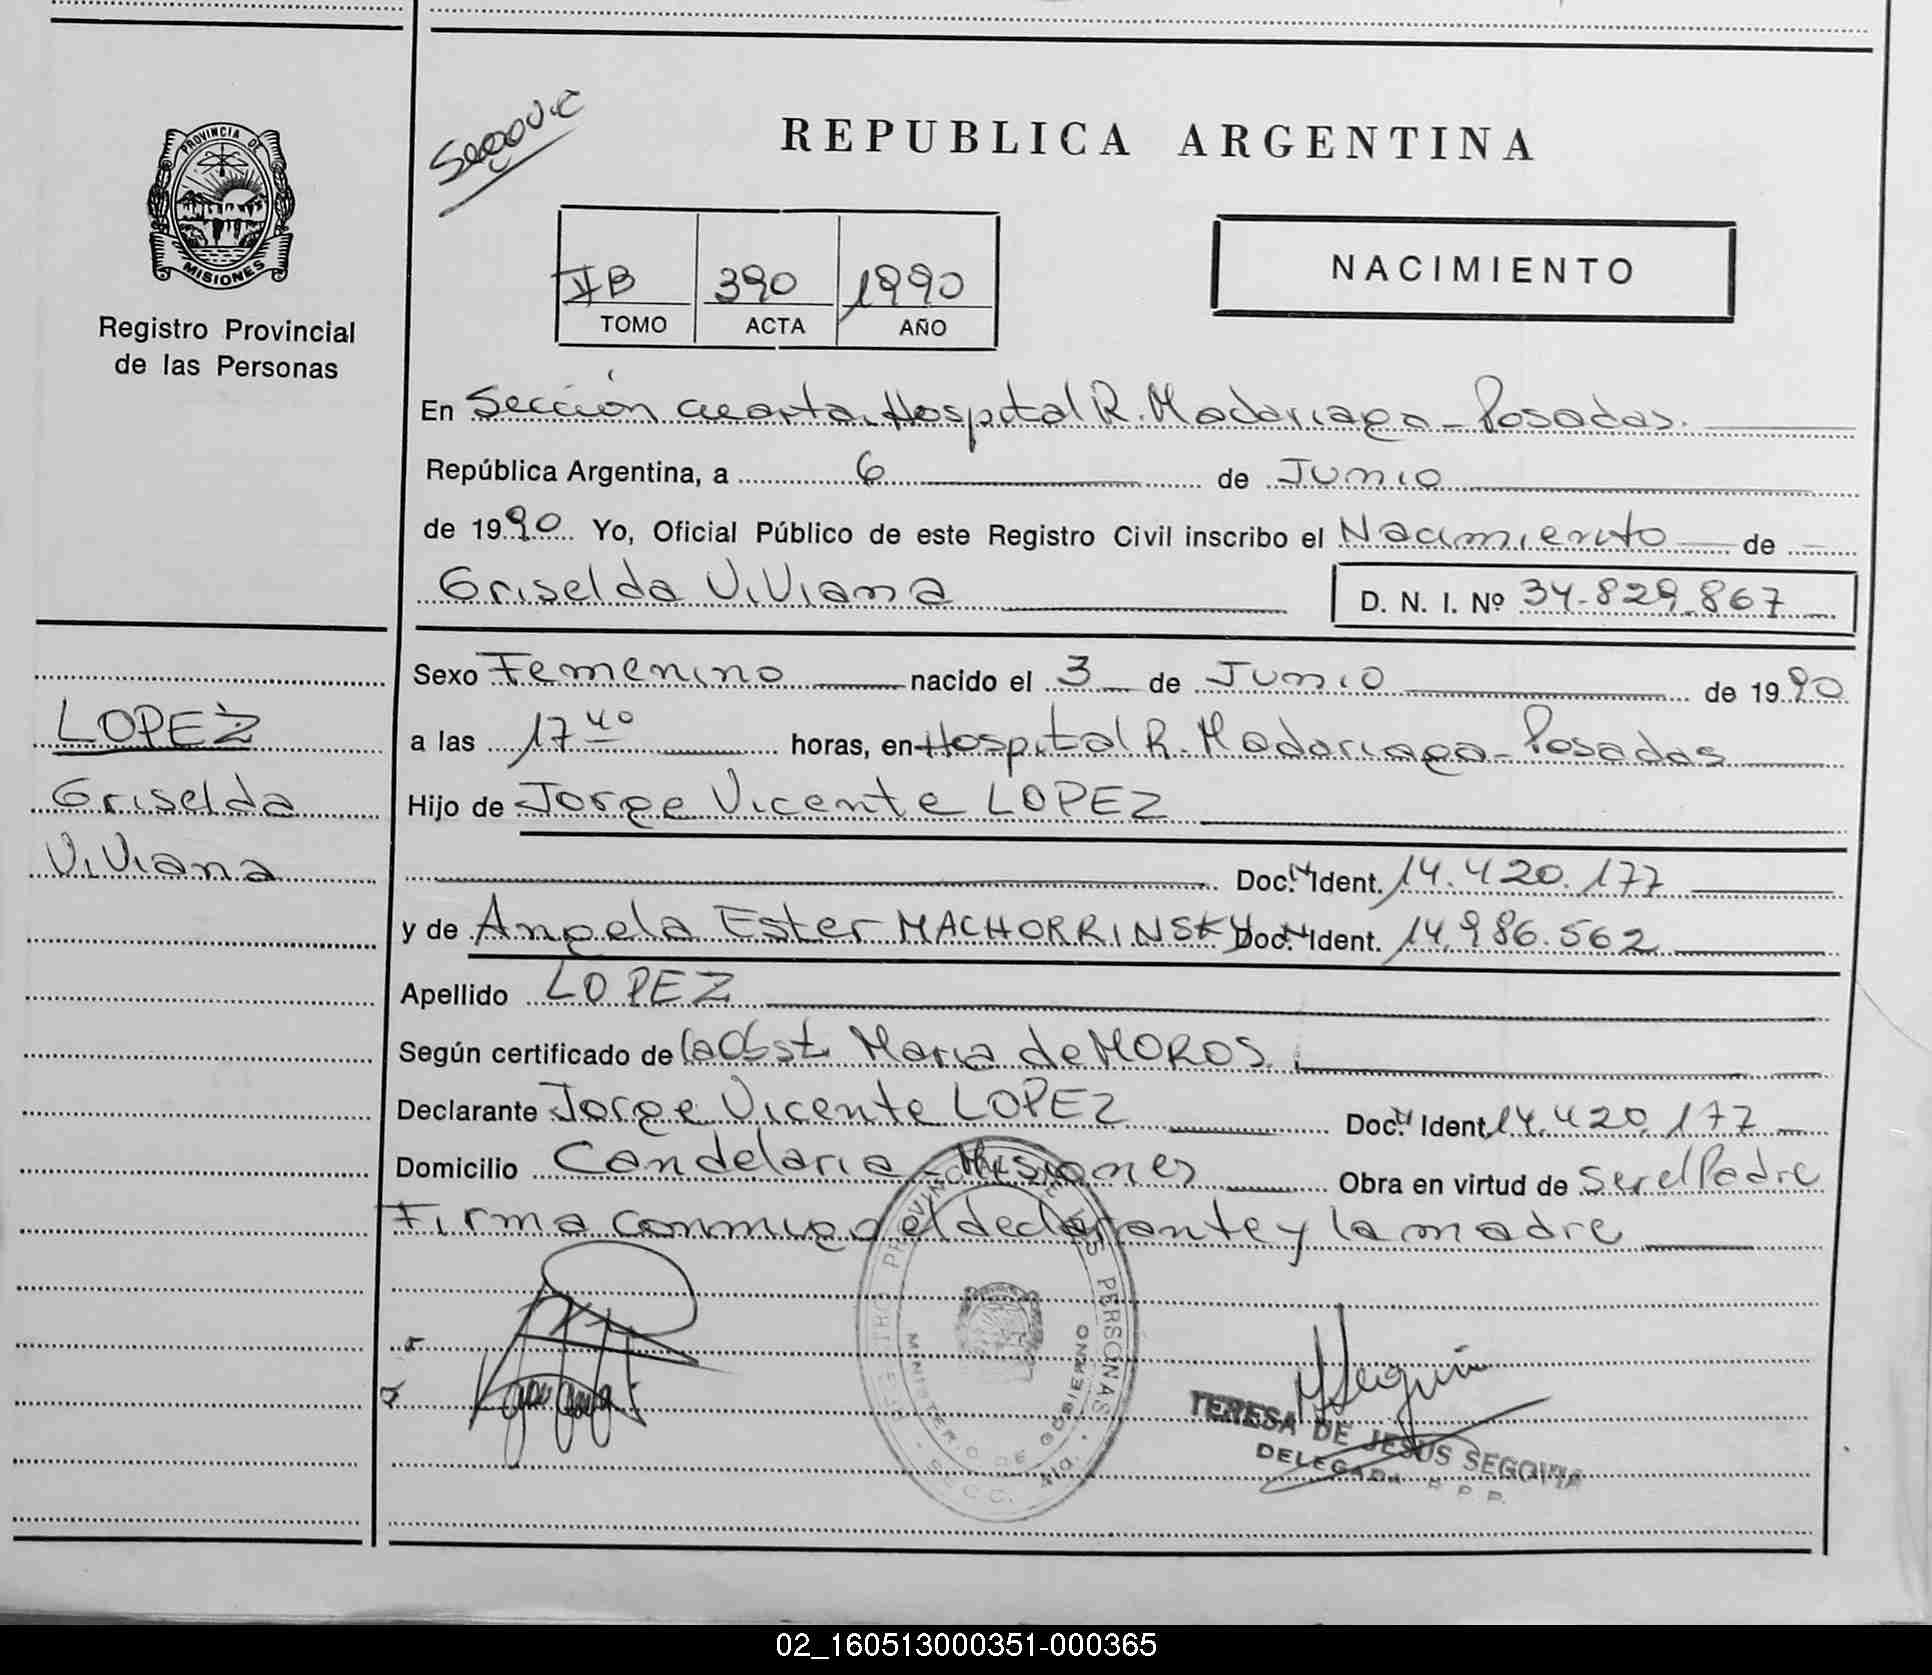 PROVINCIA DE
MISIONES
Registro Provincial
de las Personas
LOPEZ
Griselda
Viviana
REPUBLICA ARGENTINA
390 1990
TOMO ACTA AÑO
NACIMIENTO
En Sección cuarta Hospital R. Madariaga - Posadas.
República Argentina, a 6 de Junio
de 1990 Yo, Oficial Público de este Registro Civil inscribo el Nacimiento de
Griselda Viviana D. N. I. Nº 34.829.867
Sexo Femenino nacido el 3 de Junio de 1990
a las 17 40 horas, en Hospital R. Madariaga - Posadas
Hijo de Jorge Vicente LOPEZ
Doc. N Ident. 14.420.177
y de Angela Ester MACHORRINSKY Doc. N Ident. 14.986.562
Apellido LOPEZ
Según certificado de la Obst. Maria de MOROS
Declarante Jorge Vicente LOPEZ Doc. N Ident. 14.420.177
Domicilio Candelaria - Misiones Obra en virtud de ser el Padre
Firma conmigo el declarante y la madre
REGISTRO PROVINCIAL DE LAS PERSONAS
MINISTERIO DE GOBIERNO
TERESA DE JESUS SEGOVIA
DELEGADA R.P.P.
02_160513000351-000365